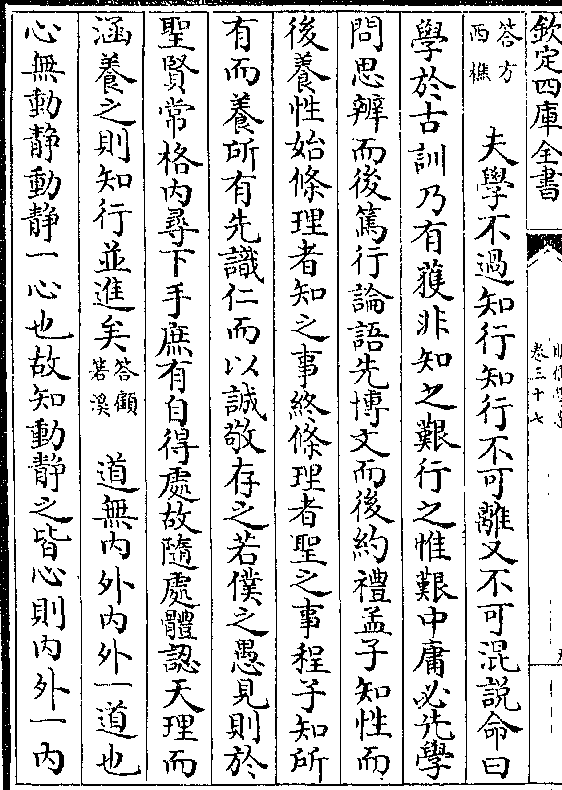 欽定四庫全書
卷三十七
答方西樵 夫學不過知行知行不可離又不可混說命曰
學於古訓乃有獲非知之艱行之惟艱中庸必先學
問思辨而後篤行論語先博文而後約禮孟子知性而
後養性始條理者知之事終條理者聖之事程子知所
有而養所有先識仁而以誠敬存之若僕之愚見則於
聖賢常格内尋下手庶有自得處故隨處體認天理而
涵養之則知行並進矣答顧箬溪 道無内外内外一道也
心無動静動静一心也故知動静之皆心則内外一内